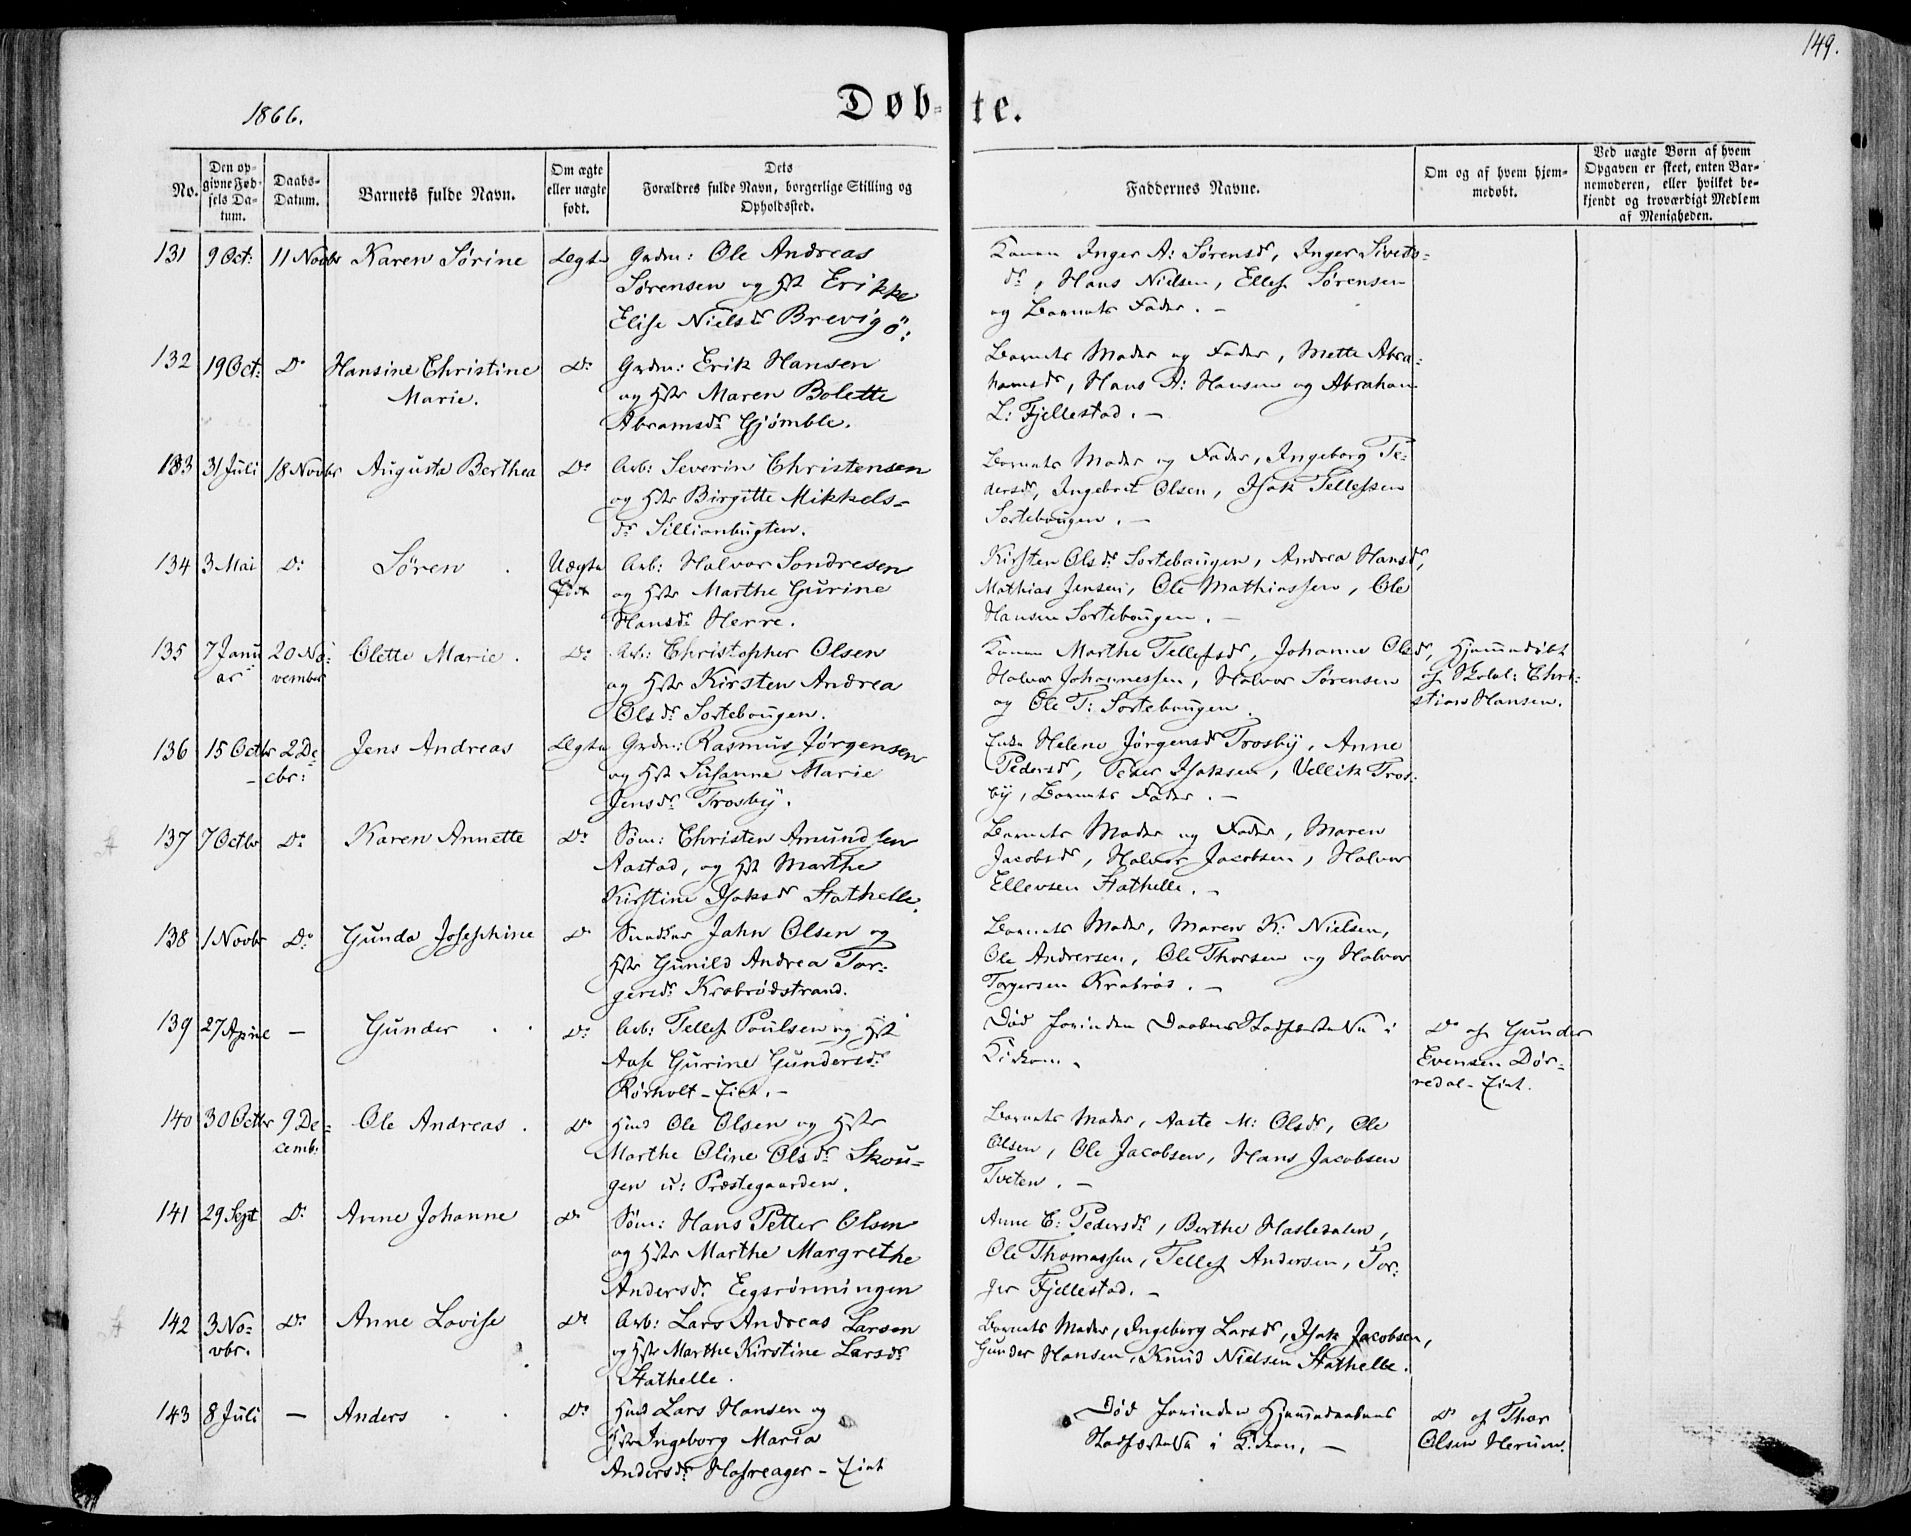 149.
1866.
Døb-te.
No.
Den op-
givne Fød-
sels Da-
tum.
Daabs-
Datum.
Barnets fulde Navn.
Om ægte
eller uægte
født.
Dets
Forældres fulde Navn, borgerlige Stilling og
Opholdssted.
Faddernes Navne.
Om og af hvem hjem-
medøbt.
Ved uægte Børn af hvem
Opgaven er skeet, enten Bar-
nemoderen, eller hvilket be-
kjendt og troværdigt Medlem
af Menigheden.
131 9 Oct: 11 Novbr Karen Sørine Ægte Grdm: Ole Andreas
Sørensen og Hst Erikke
Elise Nielsdr Brevigø:
Konen Inger A: Sørensdr, Inger Siverts-
dr, Hans Nielsen, Ellef Sørensen
og Barnets Fader. –
132 19 Oct: Do Hansine Christine
Marie.
Do Grdm: Erik Hansen
og Hstr Maren Bolette
Abramsdr Gjømble.
Barnets Moder og Fader, Mette Abra-
hamsdr, Hans A: Hansen og Abraham
L: Fjellestad. –
133 31 Juli 18 Novbr Augusta Berthea Do Arb: Severin Christensen
og Hstr Birgitte Mikkels-
dr Sillianbugten.
Barnets Moder og Fader, Ingeborg Pe-
dersdr, Ingebret Olsen, Isak Tellefsen
Sortebougen. –
134 3 Mai Do Søren Uægte
født
Arb: Halvor Sondresen
og Hstr Marthe Gurine
Hansdr Herre.
Kirsten Olsdr Sortebougen, Andrea Hansdr,
Mathias Jensen, Ole Mathiassen, Ole
Hansen Sortebougen. –
135 7 Janu
ar
20 No-
vember
Olette Marie. Do Arb: Christopher Olsen
og Hstr Kirsten Andrea
Olsdr Sortebougen.
Konen Marthe Tellefsdr, Johanne Olsdr,
Halvor Johannessen, Halvor Sørensen
og Ole T: Sortebougen.
Hjemmedøbt
af Skolel: Chri-
stian Hansen.
136 15 Octbr 2 De-
cbr:
Jens Andreas Ægte Grdm: Rasmus Jørgensen
og Hst Susanne Marie
Jensdr Trosby.
Enke Helene Jørgensdr Trosby, Anne
Pedersdr, Peder Isaksen, Vellik Tros-
by, Barnets Fader. –
137 7 Octbr Do Karen Annette Do Søm: Christen Amundsen
Aastad, og Hst Marthe
Kirstine Isaksdr Stathelle.
Barnets Moder og Fader, Maren
Jacobsdr, Halvor Jacobsen, Halvor
Ellevsen Stathelle. –
138 1 Novbr Do Gunda Josephine Do Snedker Jahn Olsen og
Hstr Gunild Andrea Tor-
gersdr Krabrødstrand.
Barnets Moder, Maren K: Nielsen,
Ole Andersen, Ole Thorsen og Halvor
Torgersen Krabrøs. –
139 27 April – Gunder Do Arb: Tellef Poulsen og Hst
Aase Gurine Gundersdr
Rørholt – Eiet. –
Død forinden Daaben Stadfæstedes i
Kirken.
Do af Gunder
Evensen Dør-
redal – Eiet.
140 30 Octbr 9 De-
cemb:
Ole Andreas. Do Huusm Ole Olsen og Hstr
Marthe Oline Olsdr Skou-
gen u: Præstegaarden.
Barnets Moder, Aaste M: Olsdr, Ole
Olsen, Ole Jacobsen, Hans Jacobsen
Tveten. –
141 29 Sept Do Anne Johanne Do Søm: Hans Petter Olsen
og Hstr Marthe Margrethe
Andersdr Eegsrønningen
Anne C: Pedersdr, Berthe Hasledalen,
Ole Thomassen, Tellef Andersen, Tor-
ger Fjellestad. –
142 3 No-
vbr.
Do Anne Lovise Do Arb: Lars Andreas Larsen
og Hstr Marthe Kirstine Larsdr
Stathelle.
Barnets Moder, Ingeborg Larsdr, Isak Jacobsen,
Gunder Hansen, Knud Nielsen Stathelle.
143 8 Juli – Anders Do Lars Hansen og
Hstr Ingeborg Maria
Andersdr Hafreager – Eiet
Død forinden Hjemmedaabens
Stadfæstedes i Kirken, –
Do af Thor
Olsen Herum.